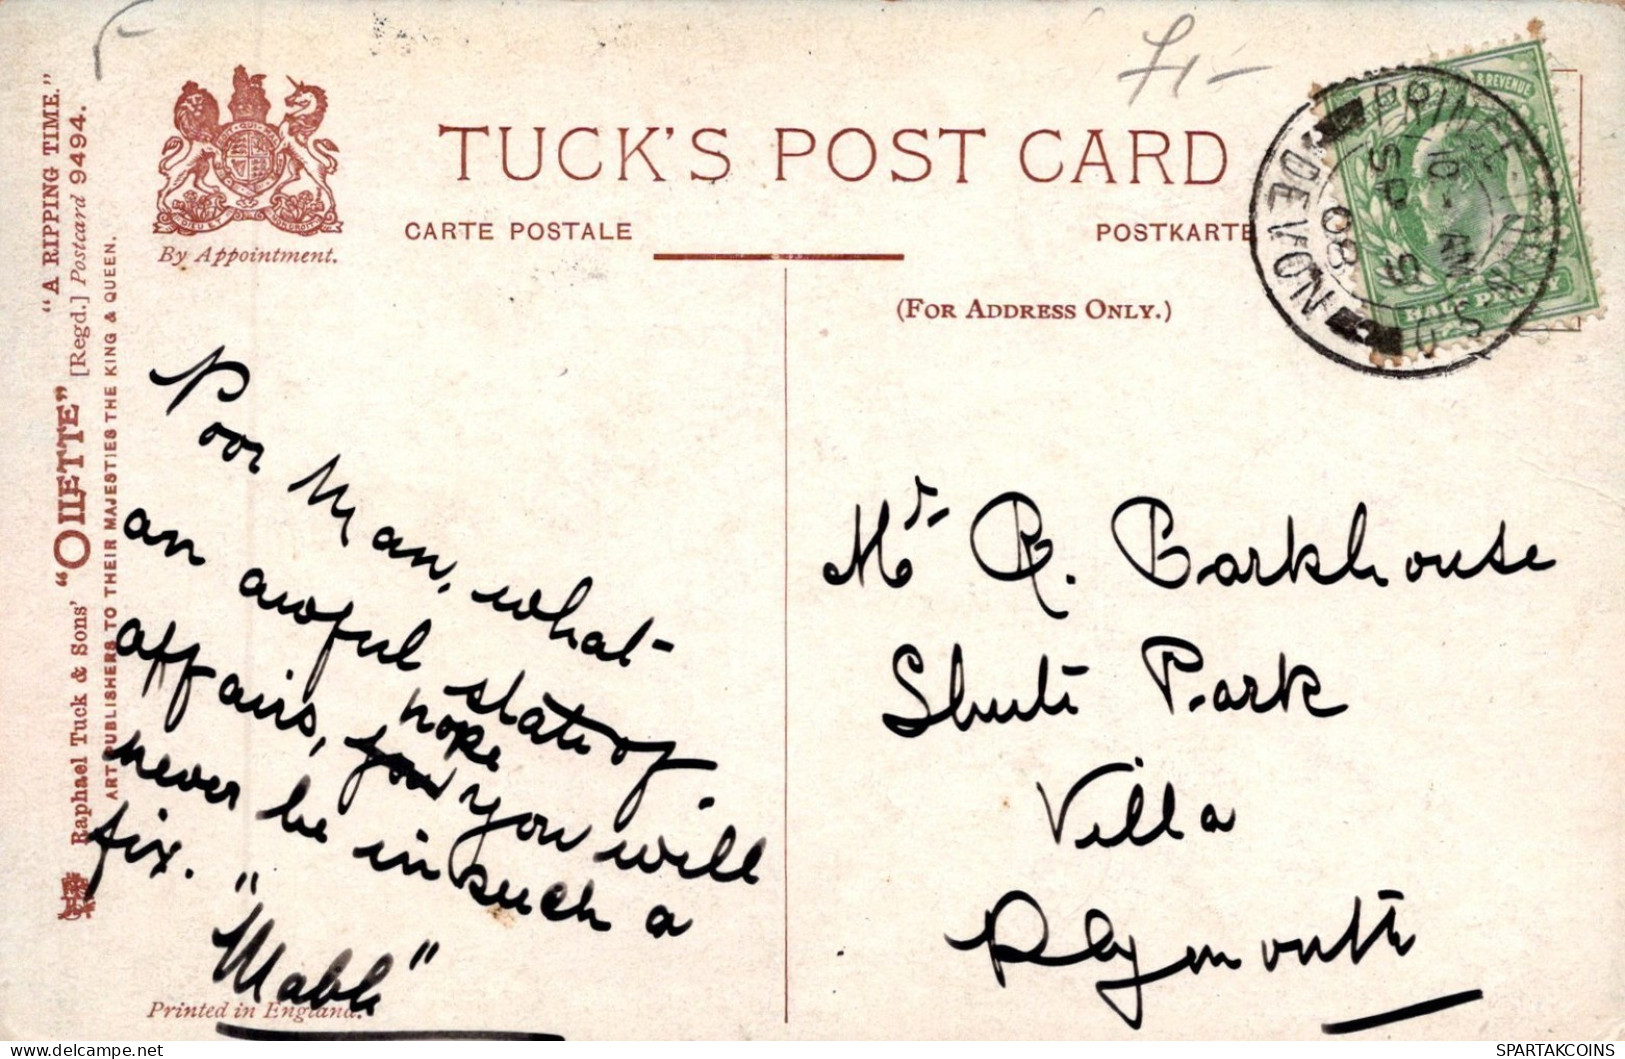 TUCK'S POST CARD
By Appointment.
CARTE POSTALE
POSTKARTE
(FOR ADDRESS ONLY.)
"A RIPPING TIME."
Raphael Tuck & Sons' "OILETTE" [Regd.] Postcard 9494.
ART PUBLISHERS TO THEIR MAJESTIES THE KING & QUEEN.
£1-
PRINCETOWN S.O
10 - AM
SP 5
08
DEVON
& REVENUE
HALF PENNY
Poor Man, what
an awful state of
affairs, hope you will
never be in such a
fix.
"Mabh"
Printed in England.
Mr R. Barkhouse
Shute Park
Villa
Plymouth
SPARTAKCOINS